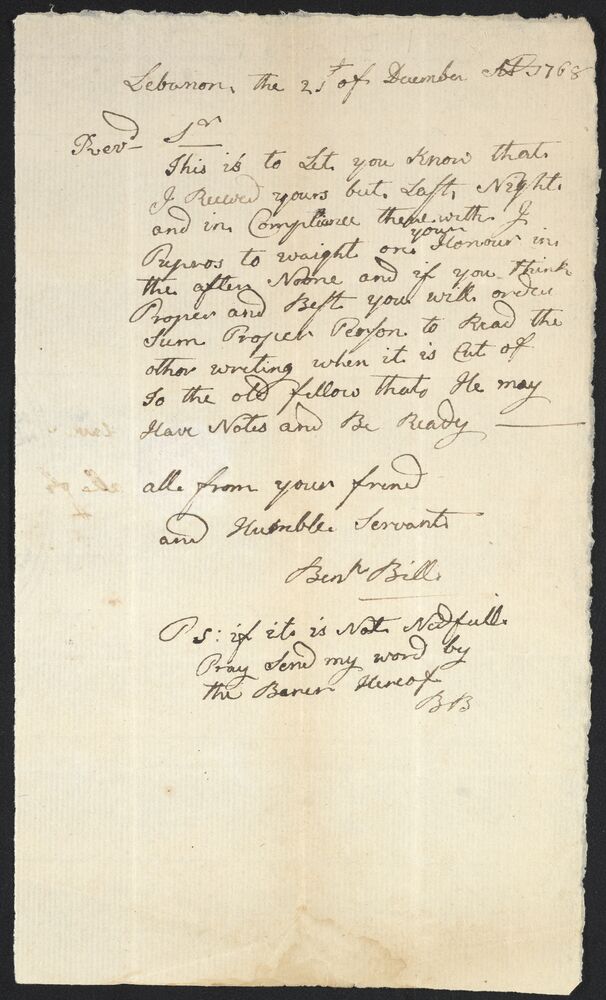 Lebanon, the 21st of December AD 1768
Revd Sr
This is to Let you Know that
I Receved yours but Last Night
and in Compliance there with I
Pupros to waight on your Honour in
the after Noone and if you think
Proper and Best you will order
Sum Proper Person to Read the
other writing when it is Cut of
To the old fellow that He may
Have Notes and Be Ready
alle from your frind
and Humble Servant
Benjn Bill
Ps: if it is Not Nedfull
Pray Send my word by
the Barer Hereof
BB